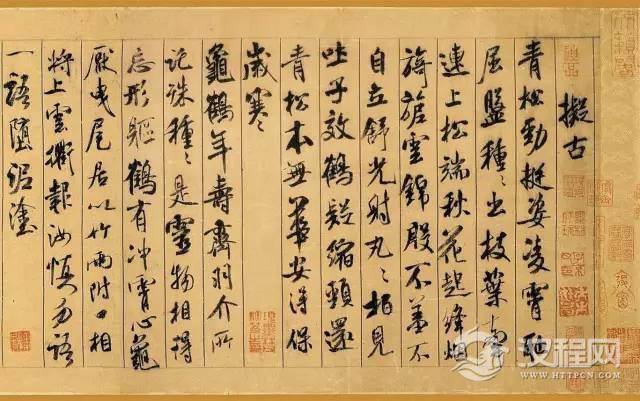 擬古
青松勁挺姿凌霄恥
屈盤種〻出枝葉牽
連上松端秋花起絳烟
旖旎雲錦殷不羞不
自立舒光射丸〻柏見
吐子效鶴疑縮頸還
青松本無華安得保
歲寒
龜鶴年壽齊羽介所
託殊種〻是靈物相得
忘形軀鶴有冲霄心龜
厭曳尾居以竹兩附口相
將上雲衢報汝慎勿語
一語墮泥塗
汉程网
HTTPCN.COM